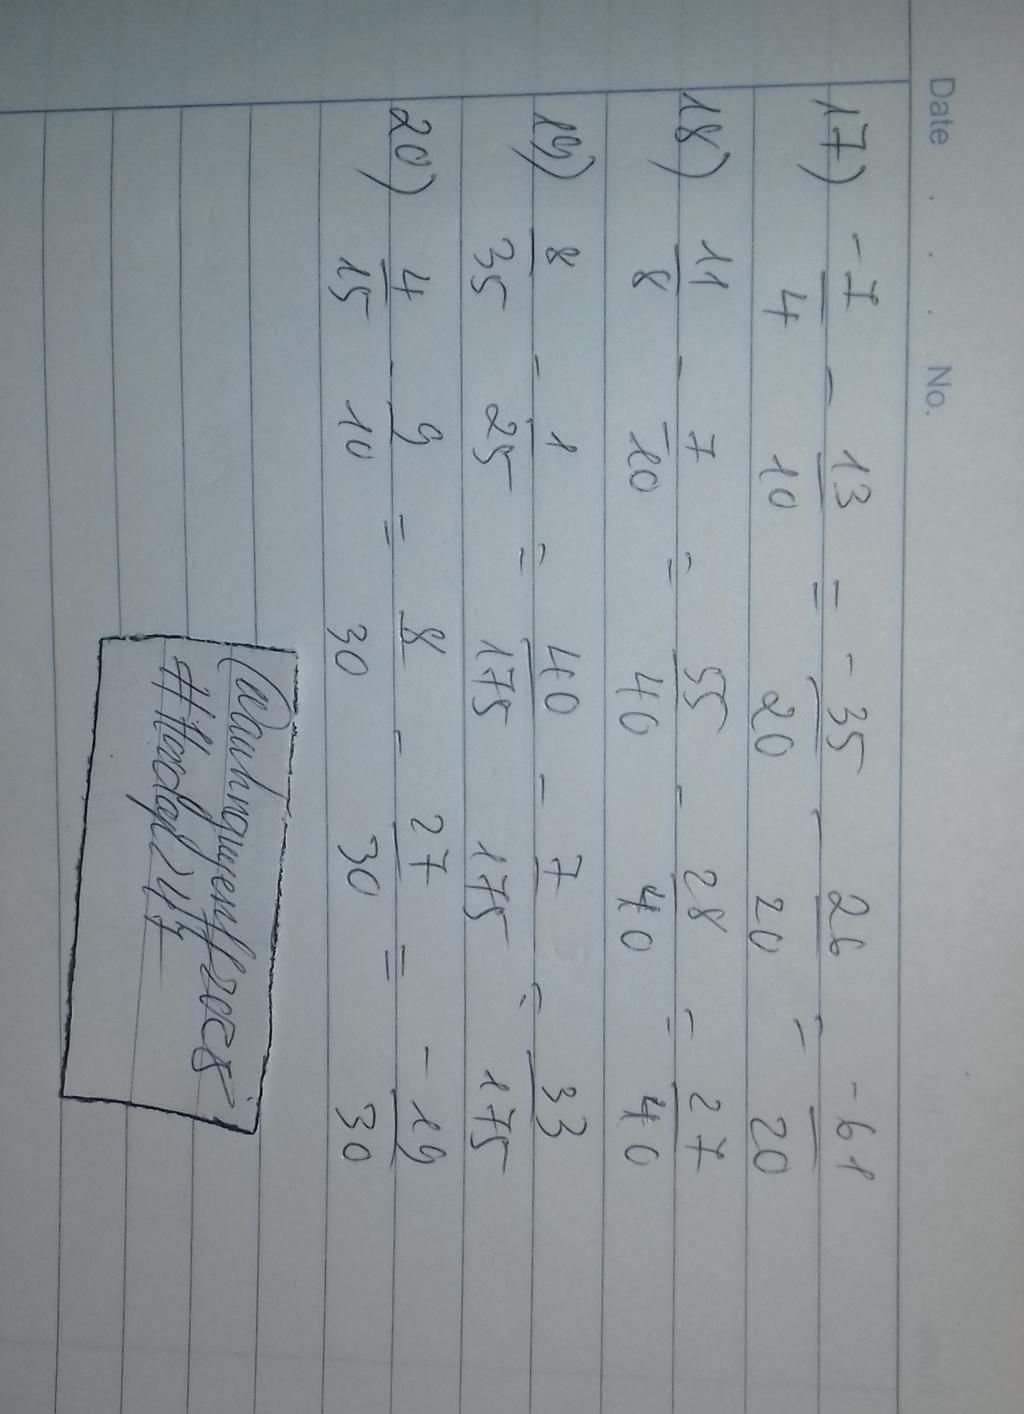 Date . . . No.
17) -7/4 - 13/10 = -35/20 - 26/20 = -61/20
18) 11/8 - 7/10 = 55/40 - 28/40 = 27/40
19) 8/35 - 1/25 = 40/175 - 7/175 = 33/175
20) 4/15 - 9/10 = 8/30 - 27/30 = -19/30